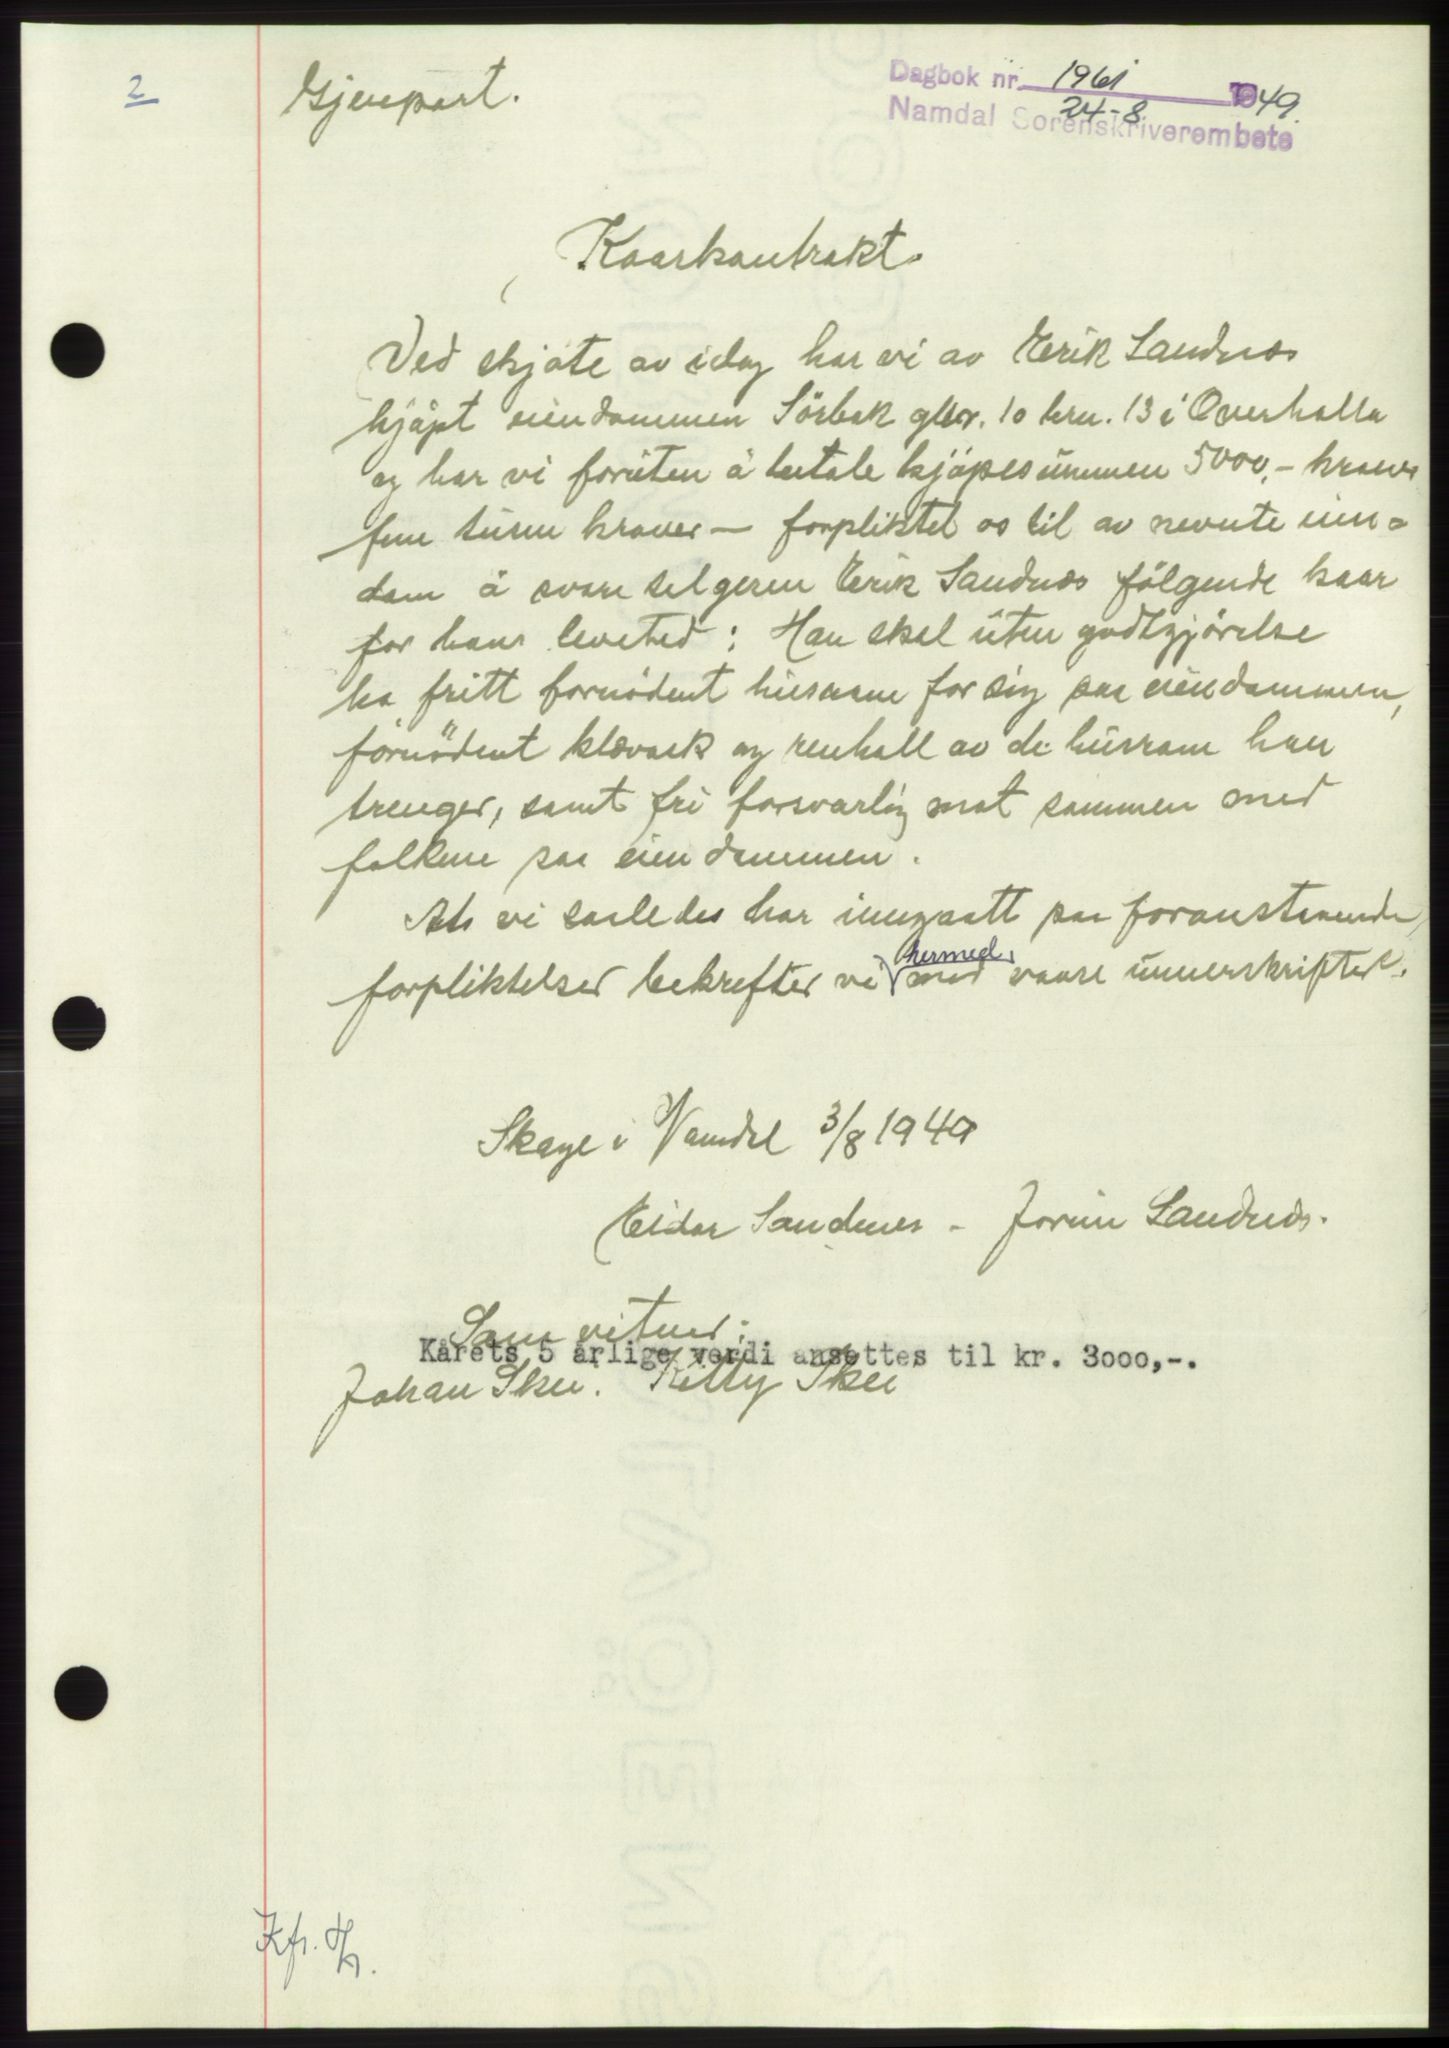 2
Gjenpart.
Dagbok nr. 1961 1949.
24-8
Namdal Sorenskriverembete
Kaarkontrakt.
Ved skjøte av idag har vi av Erik Sandnæs
kjöpt eiendommen Sörbek gbnr. 10 brn. 13 i Overhalla
og har vi foruten å betale kjöpesummen 5000,- kroner
fem tusen kroner — forpliktet os til av nevnte eien=
dom å svare selgeren Erik Sandnæs fölgende kaar
for hans levetid: Han skal uten godtgjörelse
ha fritt fornödent husrum for sig paa eiendommen,
fornödent klævask og renhold av de husrom han
trenger, samt fri forsvarlig mat sammen med
folkene paa eiendommen.
At vi saaledes har inngaatt paa foranstaaende
forpliktelser bekrefter vi hermed
med vaare unnerskrifter.
Skage i Namdal 3/8 1949
Eidar Sandnes - Jorun Sandnæs.
Som vitner:
Kårets 5 årlige verdi ansettes til kr. 3000,-.
Johan Skei. Kitty Skei
Kfr. H.